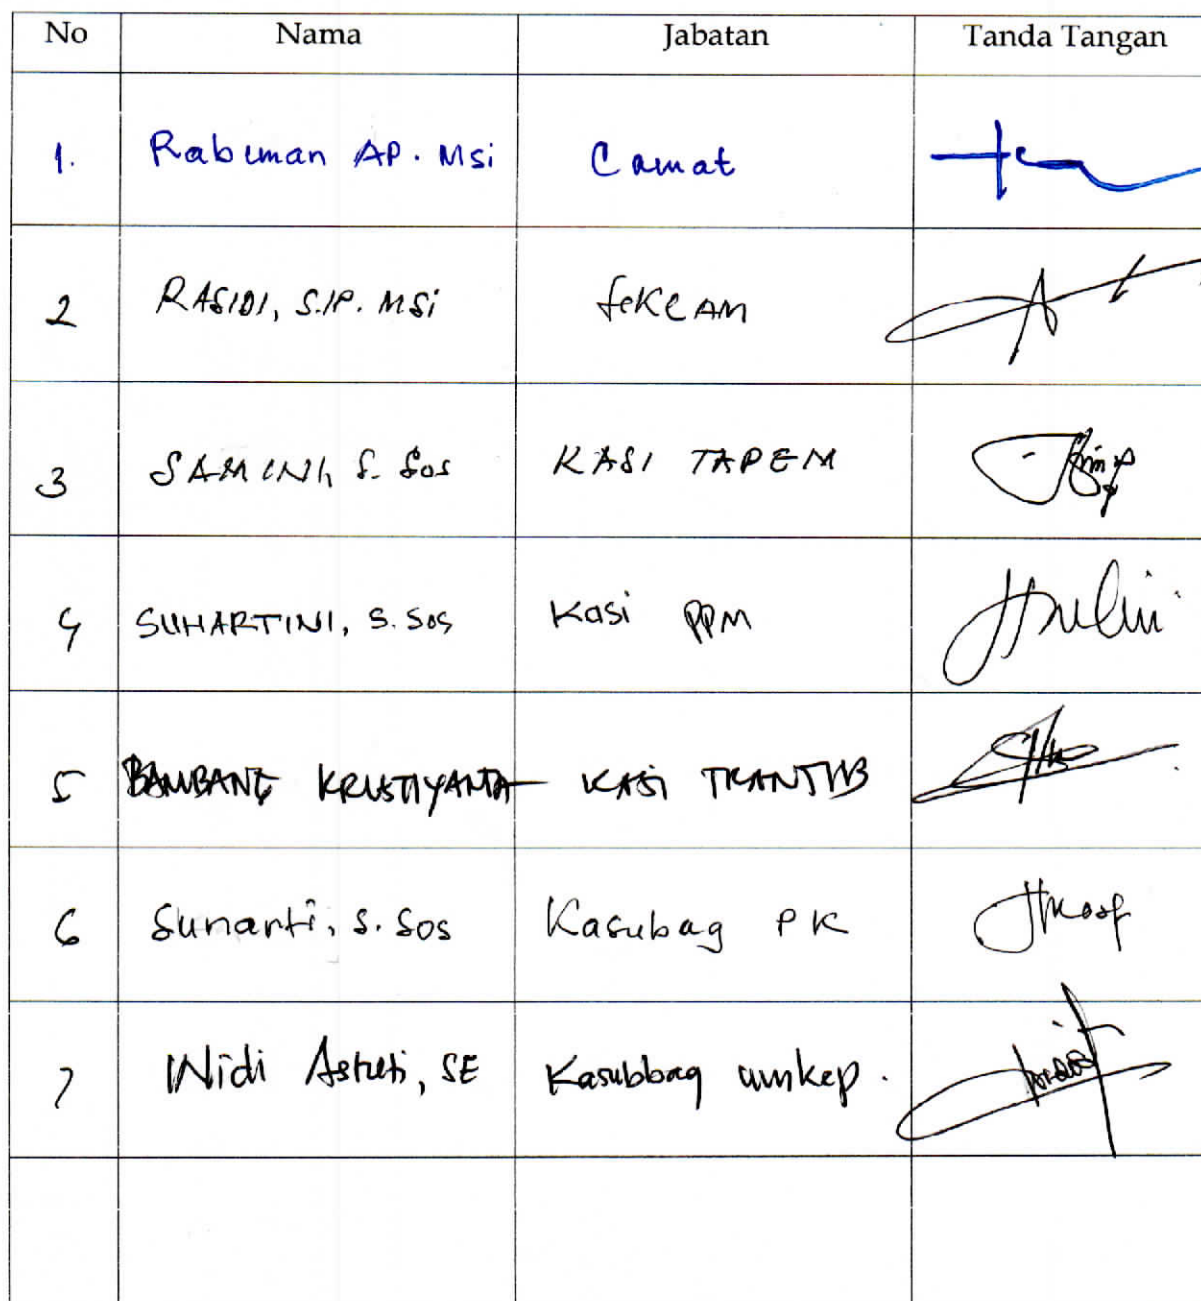 No Nama Jabatan Tanda Tangan
1. Rabiman AP. Msi Camat
2 RASIDI, S.IP. MSi SeKCAM
3 SAMINI, S. Sos KASI TAPEM
4 SUHARTINI, S. Sos Kasi PPM
5 BAMBANG KRISTIYANTA KASI TRANTIB
6 Sunarti, S. Sos Kasubag PK
7 Widi Astuti, SE Kasubbag umkep.